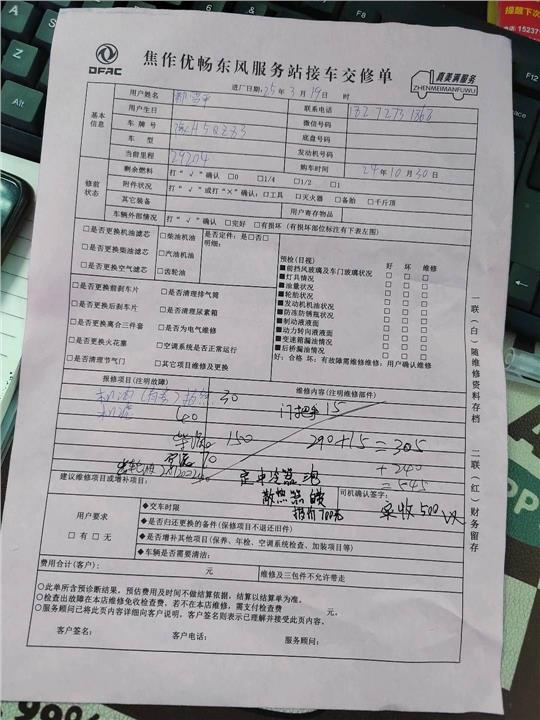 提醒下次
DFAC
焦作优畅东风服务站接车交修单
真美满服务
ZHENMEIMANFUWU
进厂日期:25年3月19日 时
基本信息
用户姓名
联系电话
用户生日
微信号码
车牌号
底盘号码
车型
发动机号码
当前里程 29204
购车时间 24年10月30日
修前状态
剩余燃料 打“√”确认 □0 □1/4 □1/2 □1
附件状况 打“√”或打“×”确认:□工具 □灭火器 □备胎 □千斤顶
其它装备 用户寄存物品
车辆外部情况 打“√”确认 □完好 □有损坏(有损坏部位标注有下表左图)
□是否更换机油滤芯 □柴油机油 是否定件:是□否□
□是否更换柴油滤芯 □汽油机油 明细:
□是否更换空气滤芯 □齿轮油
□是否更换前刹车片 □是否清理排气筒
□是否更换后刹车片 □是否清理尿素箱
□是否更换离合三件套 □是否为电气维修
□是否更换火花塞 □空调系统是否正常运行
□是否清理节气门 □其它项目维修及更换
预检(目视) 好 坏 维修
■前挡风玻璃及车门玻璃状况 □ □ □
■灯具情况 □ □ □
■油量状况 □ □ □
■轮胎状况 □ □ □
■发动机机油状况 □ □ □
■防冻防锈瓶状况 □ □ □
■制动液液面 □ □ □
■动力转向液液面 □ □ □
■变速箱漏油情况 □ □ □
■后桥漏油情况 □ □ □
好:合格 坏:有故障需维修维修:用户确认维修
报修项目(注明故障) 维修内容(注明维修部件)
30
门把手 15
60
150 290+15=305
70 +240
建议维修项目或增补项目:
散热器
报价700元
司机确认签字:
实收500
用户要求
□有 □无
◆交车时限
◆是否归还更换的备件(保修项目不退还旧件)
◆是否增补其他项目(保养、年检、空调系统检查、加装项目等)
◆车辆是否需要清洁:
费用合计(客户): 元 维修及三包件不允许带走
○此单所含预诊断结果,预估费用及时间不做结算依据,结算以结算单为准。
○检查出故障在本店维修免收检查费,若不在本店维修,需支付检查费 元。
○服务顾问已将此页内容详细向客户说明,客户签名则表示已理解并接受此页内容。
客户签名: 客户电话: 服务顾问:
一联(白)随维修资料存档 二联(红)财务留存